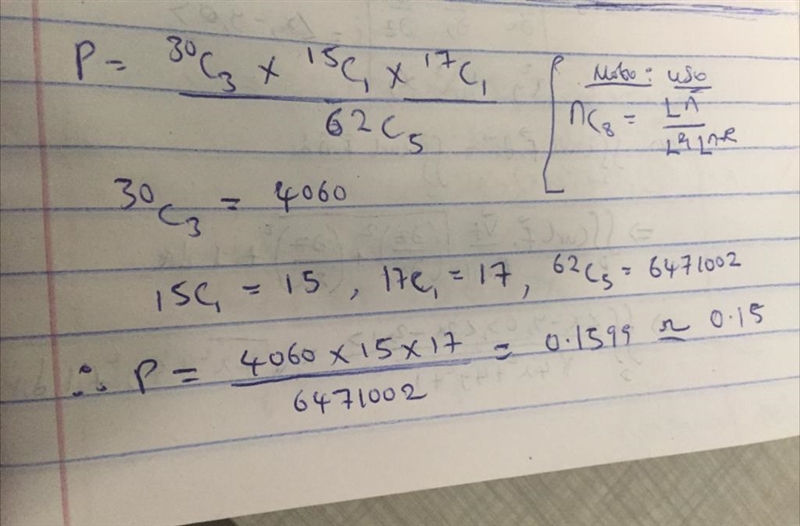 P = ³⁰C₃ × ¹⁵C₁ × ¹⁷C₁
⁶²C₅
Note: use
nCr = ⌊n
⌊r ⌊n-r
³⁰C₃ = 4060
15C₁ = 15, 17C₁ = 17, ⁶²C₅ = 6471002
∴ P = 4060 × 15 × 17 = 0.1599 ≃ 0.15
6471002